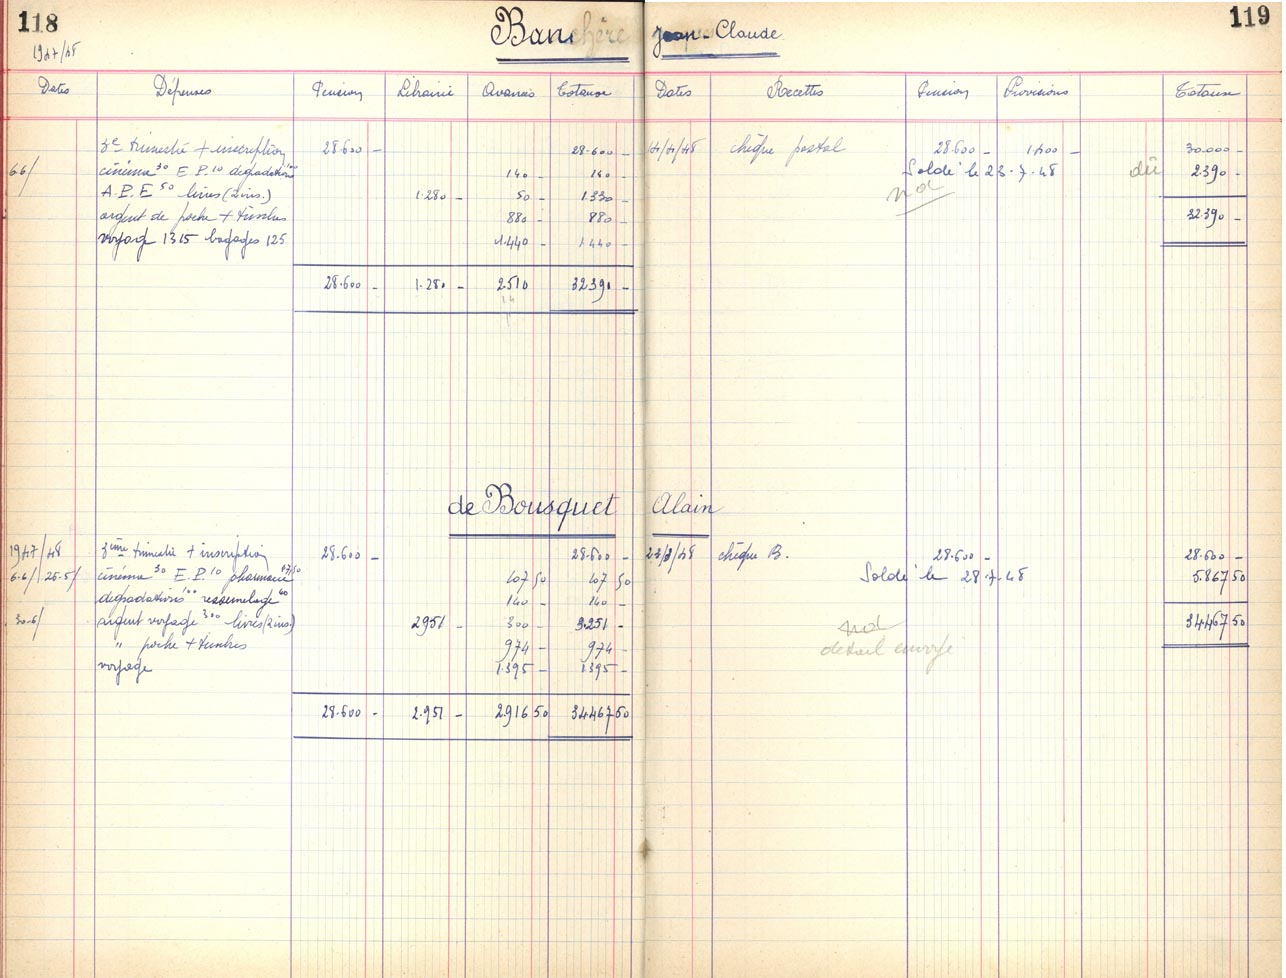 118
1947/48
Banchère Jean-Claude
119
Dates Dépenses Pension Librairie Avances Totaux Dates Recettes Pension Provisions Totaux
3e trimestre + inscription 28.600 - 28.600 - 14/4/48 chèque postal 28.600 - 1.400 - 30.000 -
6 6/ cinéma 30 E P. 10 dégradation 100 140 - 140 - Soldé le 23.7.48 dû 2.390 -
A.P.E 50 livres (2 ins.) 1.280 - 50 - 1.330 - nd
argent de poche + timbres 880 - 880 - 32.390 -
voyage 1315 bagages 125 1.440 - 1440 -
28.600 - 1.280 - 2510 32390 -
de Bousquet Alain
1947/48 3ème trimestre + inscription 28.600 - 28.600 - chèque B. 28.600 - 28.600 -
6.6/ 26.5/ cinéma 30 E.P. 10 pharmacie 67,50 107 50 107 50 Soldé le 28.7.48 5.867 50
dégradations 100 ressemelage 40 140 - 140 -
30.6/ argent voyage 300 livres (2 ins.) 2951 - 300 - 3.251 - nd 34467 50
" poche + timbres 974 - 974 - détail envoyé
voyage 1.395 - 1395 -
28.600 - 2.951 - 2.916 50 34467 50